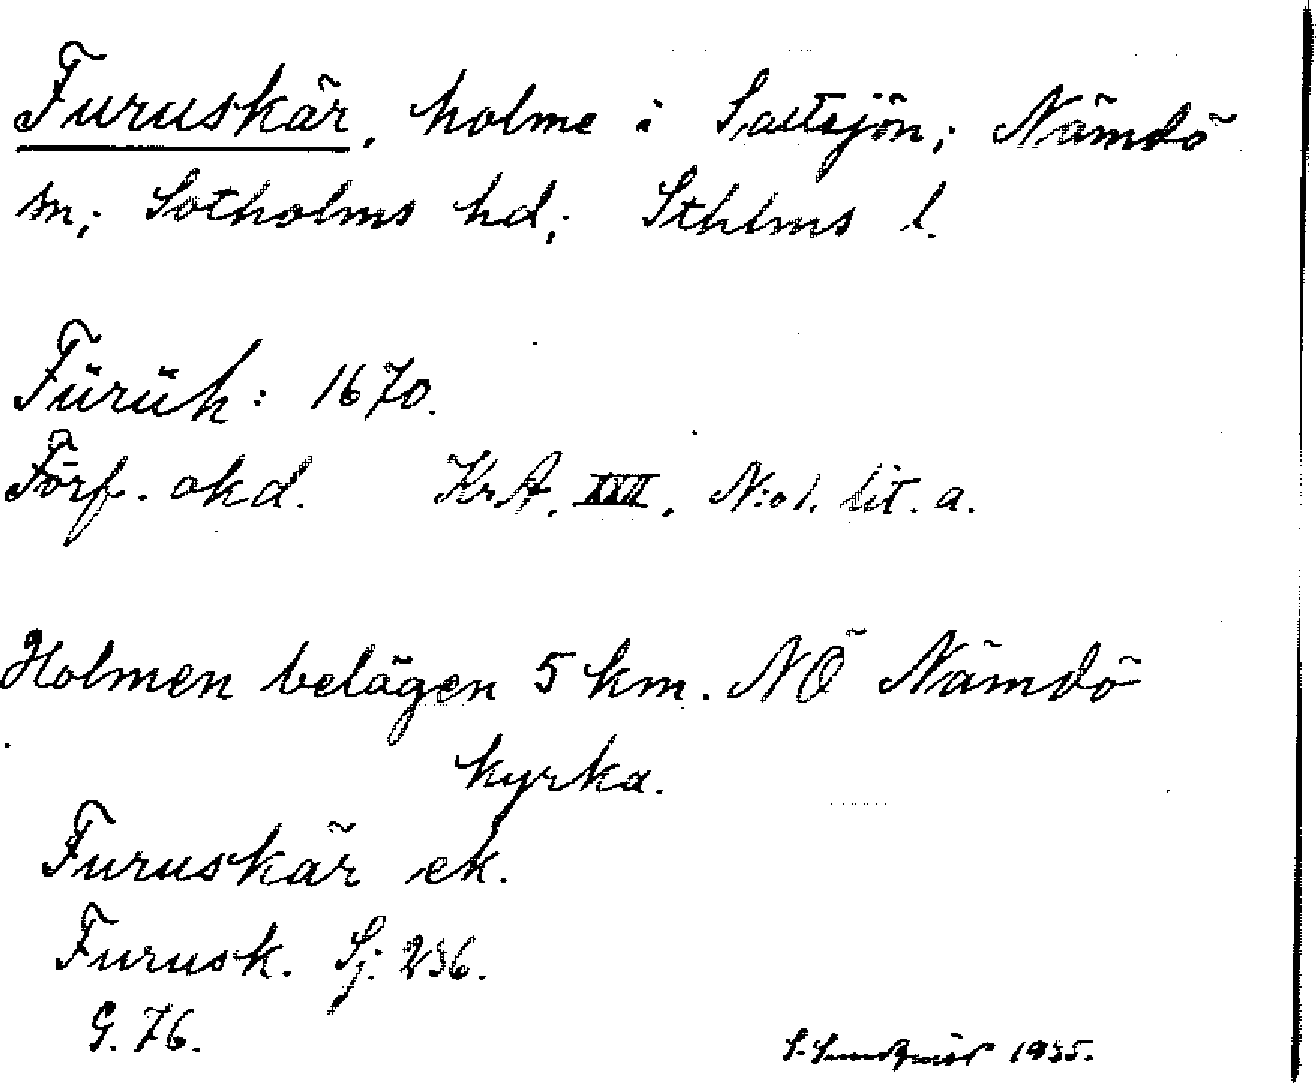 Furuskär, holme i Saltsjön; Nämdö
sn; Sotholms hd; Sthlms l.
Fürük: 1670.
Förf. okd. KrA. XVII. N:o 1. lit. a.
Holmen belägen 5 km. NÖ Nämdö
kyrka.
Furuskär ek.
Furusk. Sj. 236.
G. 76.
S. Lundqvist 1935.